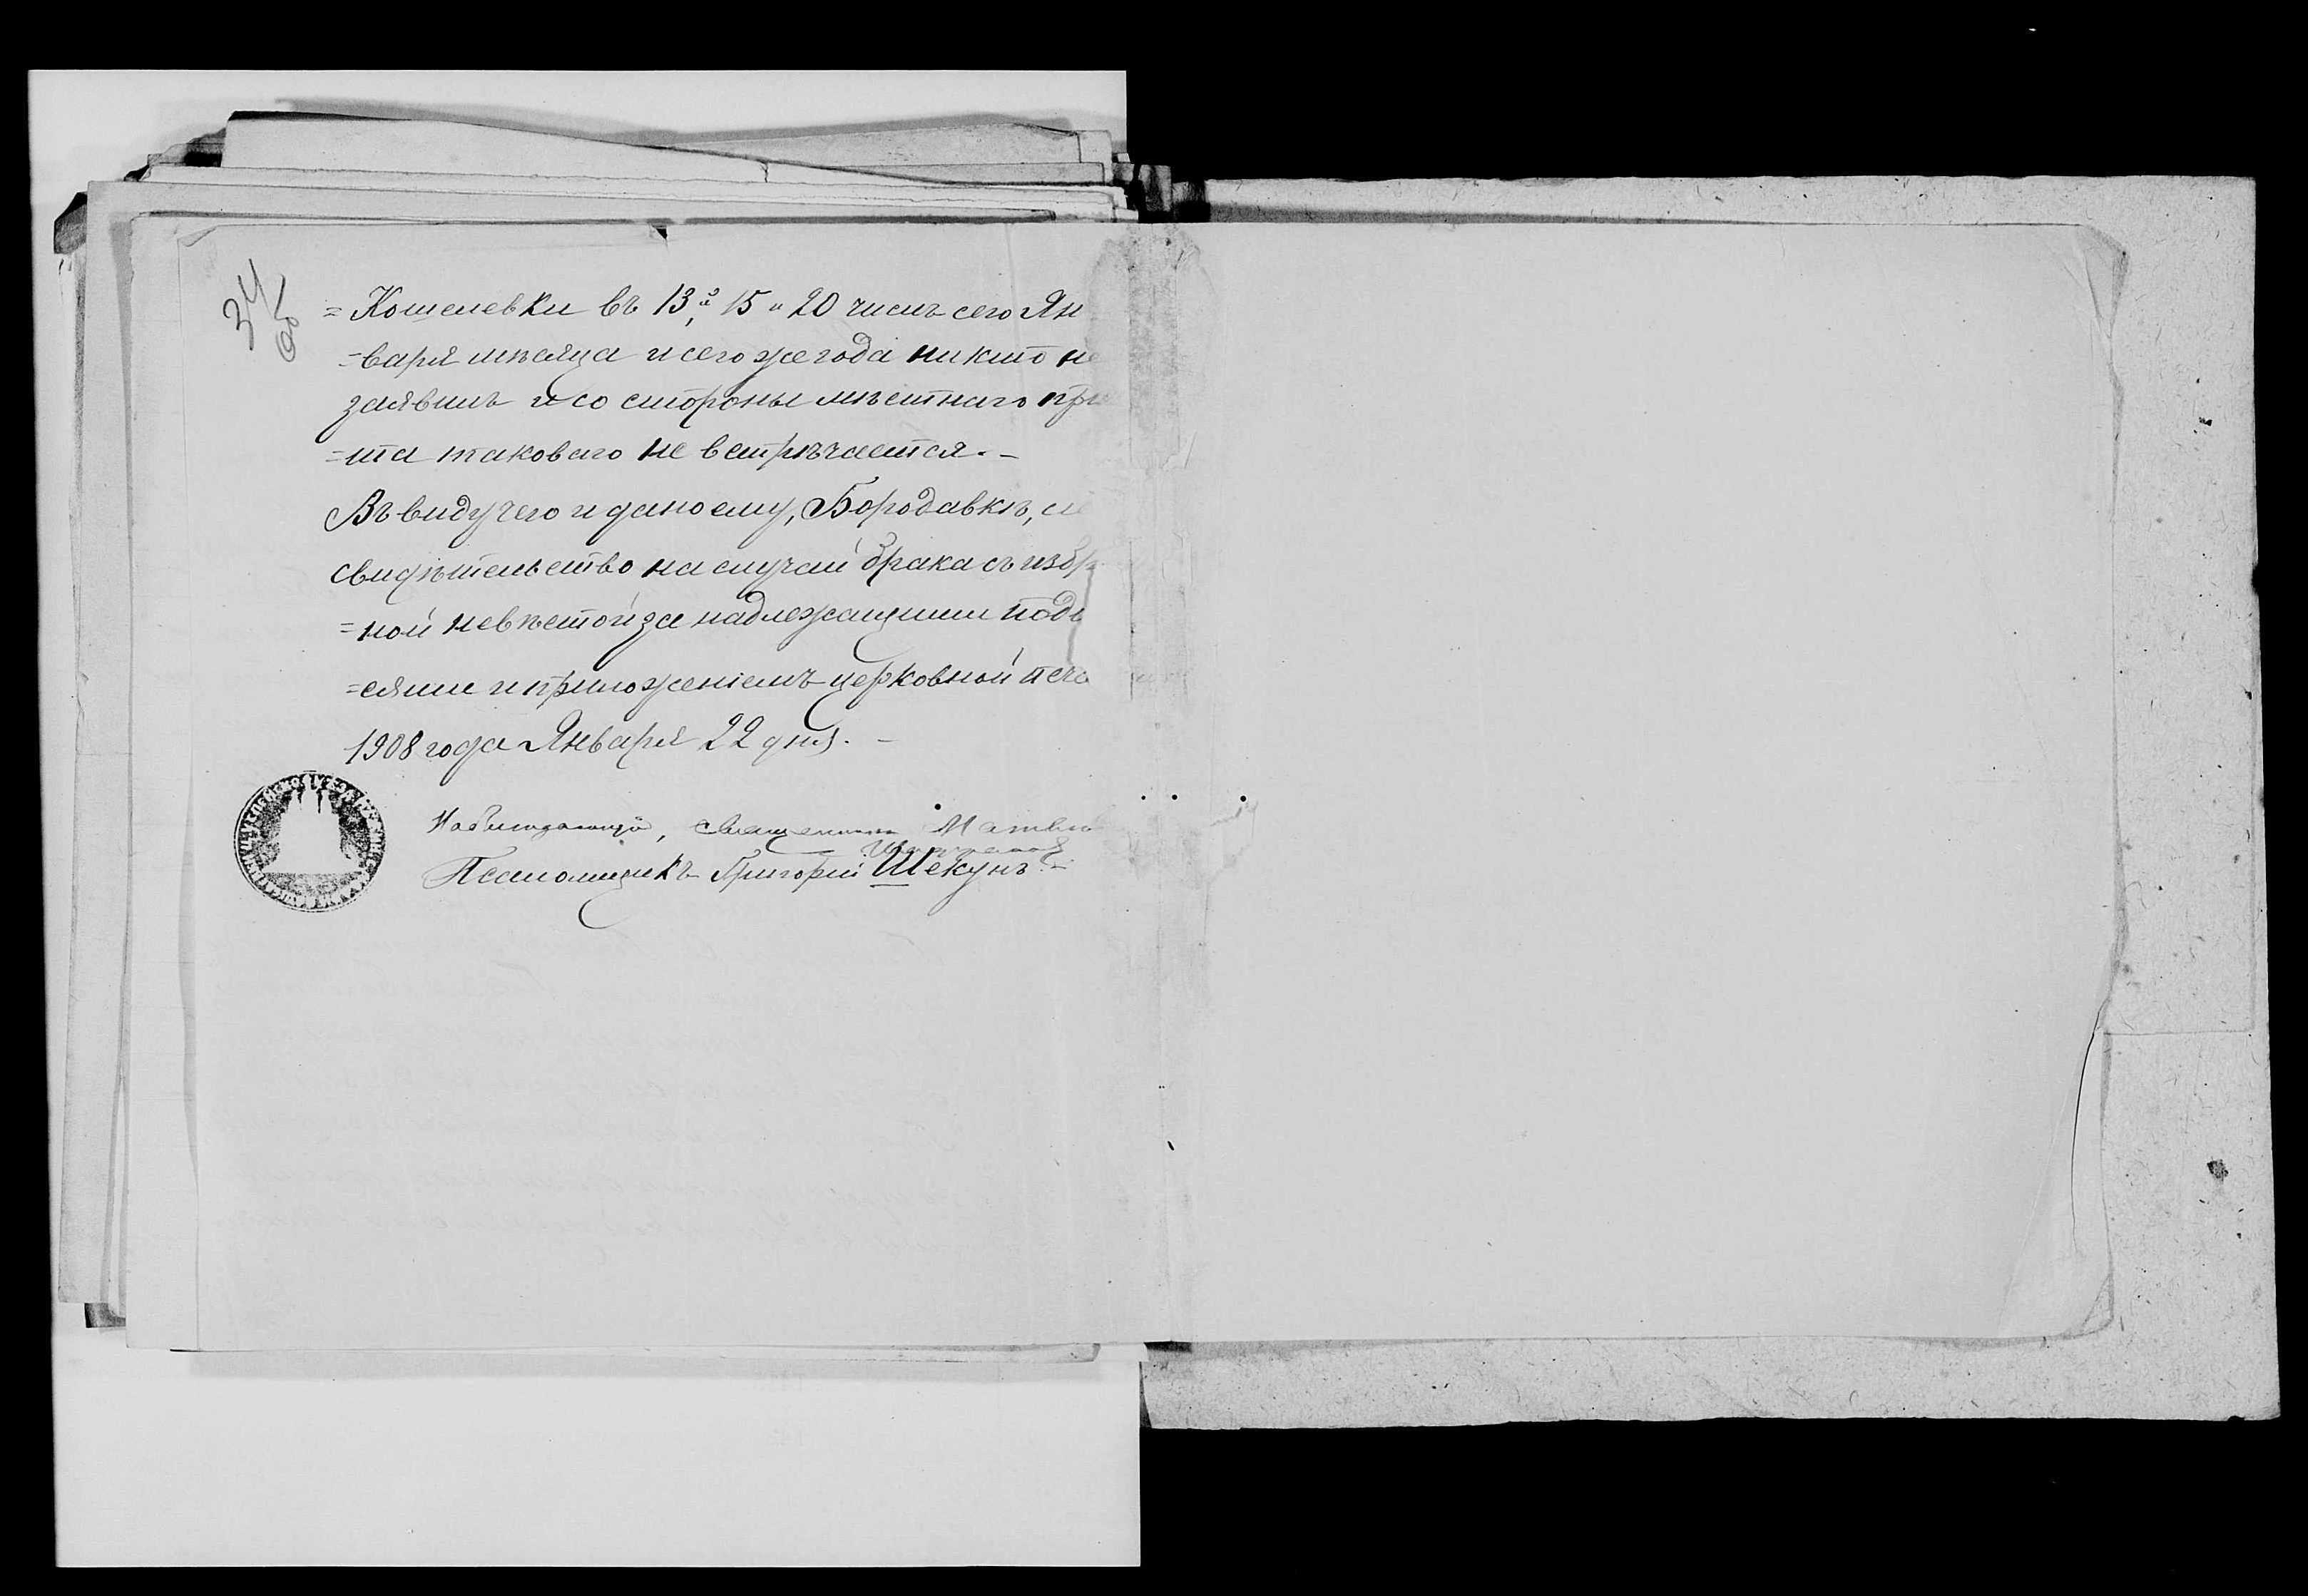 34
об
= Кошелевки въ 13, 15 и 20 числъ сего Ян
=варя мѣсяца и сего же года никто не
заявилъ и со стороны мѣстнаго при
=та таковаго не встрѣчается. –
Въ виду чего и дано ему, Бородавкѣ, сіе
свидѣтельство на случай брака съ избр
=ной невѣстой за надлежащими подп
=сями и приложеніемъ церковной печа
1908 года Января 22 дня. –
Наблюдающій, священникъ Матвѣй
Псаломщикъ Григорій Шекунъ. –